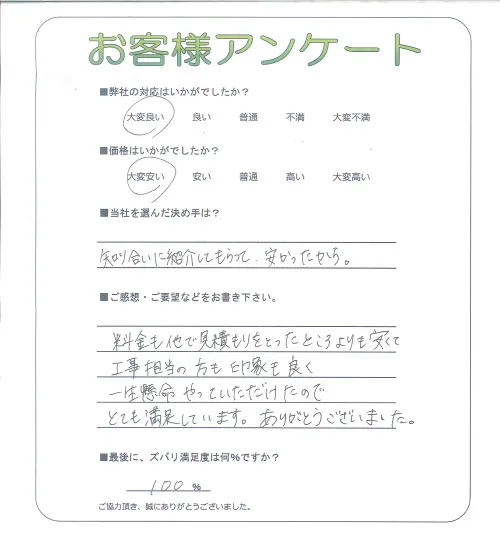 お客様アンケート
■弊社の対応はいかがでしたか？
大変良い 良い 普通 不満 大変不満
■価格はいかがでしたか？
大変安い 安い 普通 高い 大変高い
■当社を選んだ決め手は？
知り合いに紹介してもらって、安かったから。
■ご感想・ご要望などをお書き下さい。
料金も他で見積もりをとったところよりも安くて
工事担当の方も印象も良く
一生懸命やっていただけたので
とても満足しています。ありがとうございました。
■最後に、ズバリ満足度は何%ですか？
100 %
ご協力頂き、誠にありがとうございました。